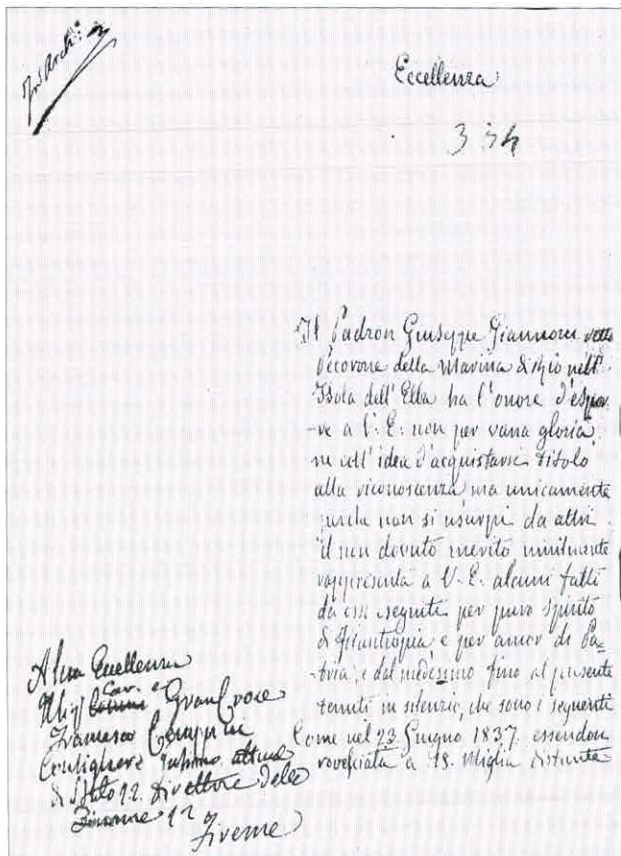 Eccellenza
3 74
Il Padron Giuseppe Giannoni detto
Pecorone della Marina di Rio nell'
Isola dell'Elba ha l'onore d'espor-
re a V. E: non per vana gloria,
ne coll'idea d'acquistarne titolo
alla riconoscenza ma unicamente
perche non si usurpi da altri
il non dovuto merito umilmente
rappresenta a V. E. alcuni fatti
da esso seguiti per puro spirito
di filantropia e per amor di Pa-
tria, e dal medesimo fino al presente
tenuti in silenzio, che sono i seguenti
Come nel 23 Giugno 1837 essendosi
rovesciata a 18. Miglia distante
A Sua Eccellenza
Cav. e
Gran Croce
Francesco Cempini
Consigliere Intimo attuale
di Stato Direttore delle
Finanze
Firenze